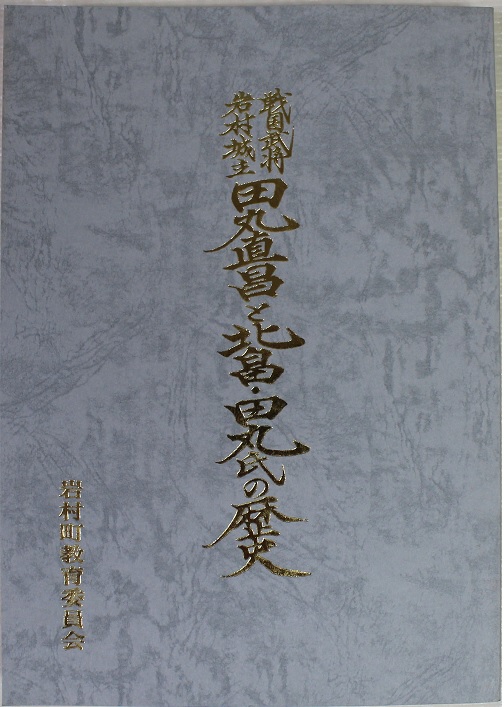 戦国武将
岩村城主
田丸直昌と北畠・田丸氏の歴史
岩村町教育委員会